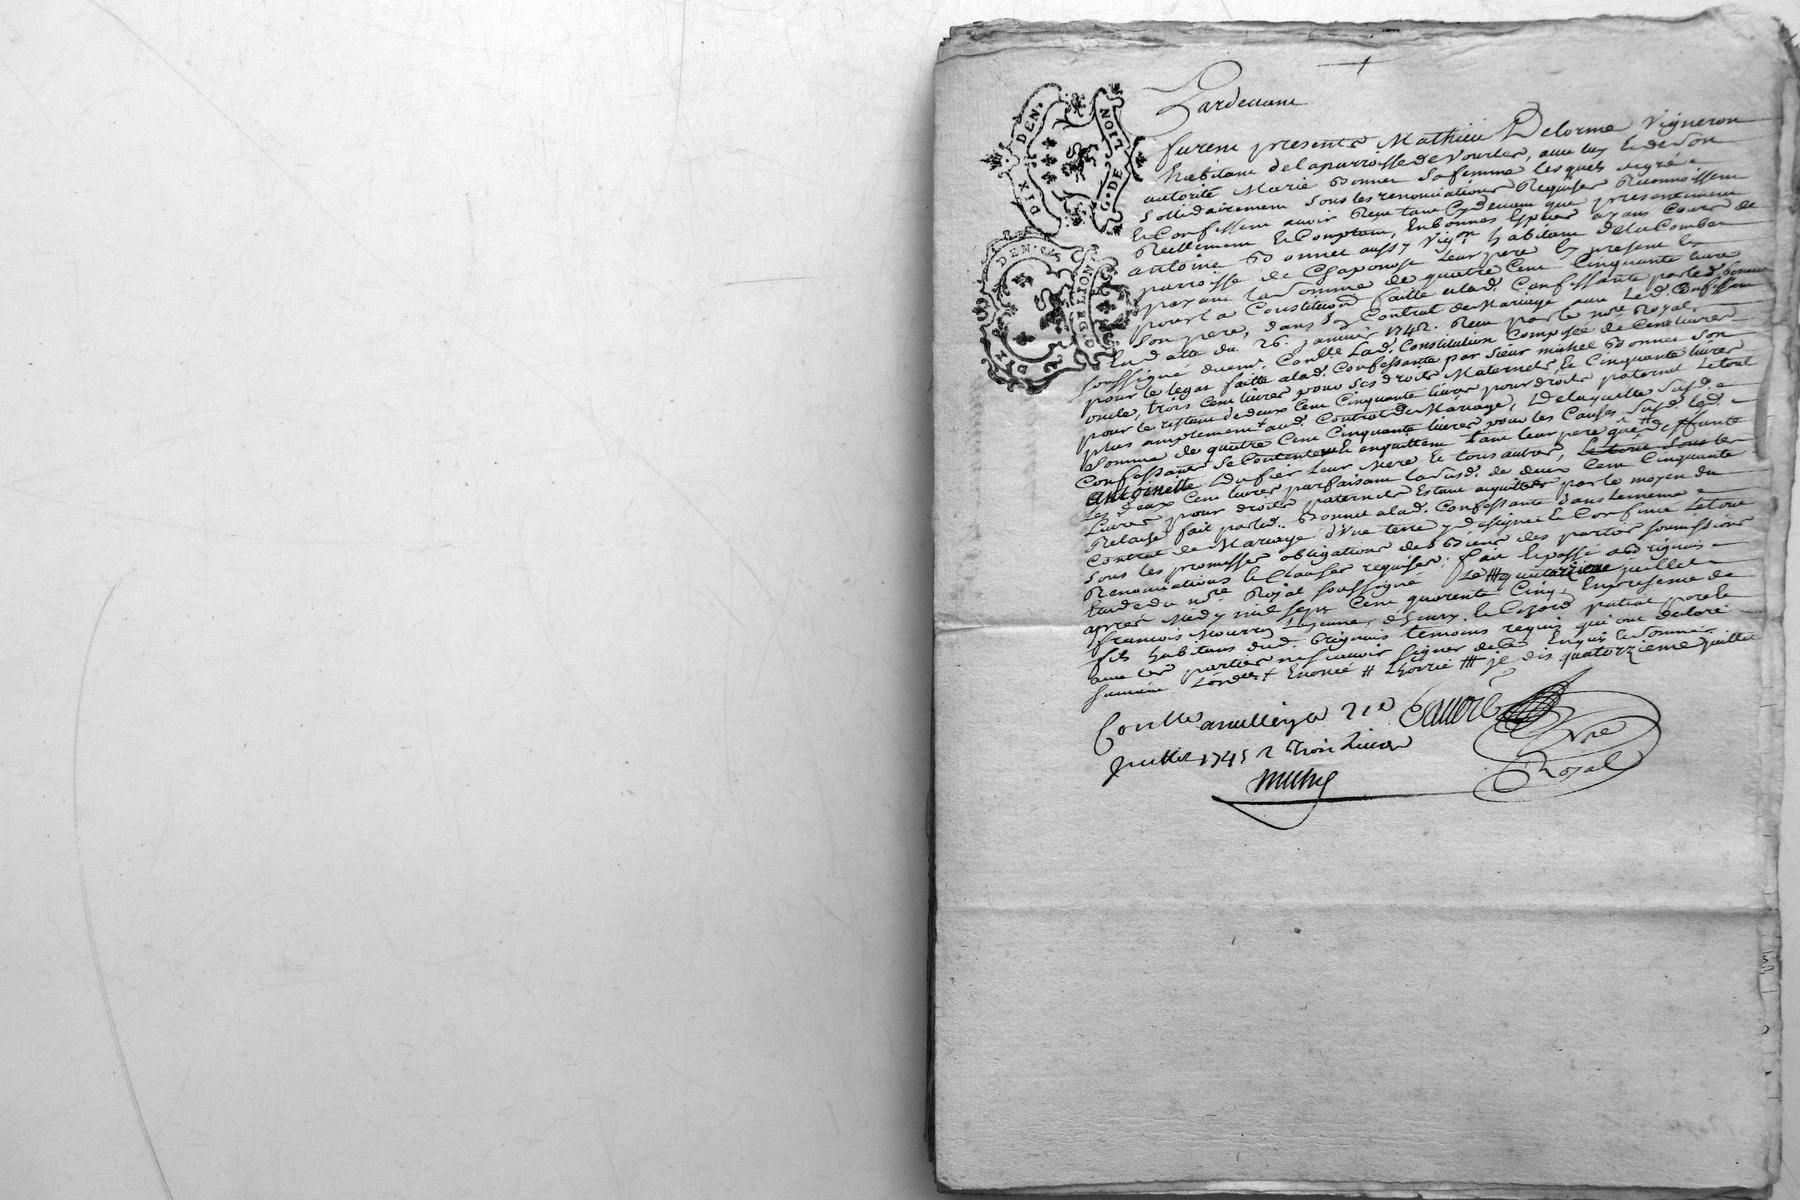 DIX DEN.
G. DE LION
DIX DEN.
G. DE LION
Pardevant
furent presents Mathieu Delorme Vigneron
habitant de la parroisse de Vourles, avec luy et de son
autorité Marie Bonnet sa femme lesquels degré
sollidairement sous les renonciations Requises Reconnoissent
et Confessent avoir Reçu tant Cydevant que presentement
Reellement et Comptant, en bonnes Especes ayans Cours de
antoine Bonnet aussy Vigon habitant de la Combe
parroisse de Chaponost leur pere et present
payant la somme de quatre Cent Cinquante livre
pour la Constitution faitte alad. Confessante parled. bonnet
son pere, dans Contrat de Mariage avec led. Confessant
En datte du 26. janvier 1742. Reçu par le nore Royal
soussigné duemt. Conllé Lad. Constitution Composée de Cent livres
pour le legat faitte alad. Confessante par sieur michel Bonnet son
oncle, trois Cent livres pour ses droits Maternels, et Cinquante livres
pour le restant de deux Cent Cinquante livres pour droits paternel le tout
plus amplement aud. Contrat de Mariage, De laquelle susd.
somme de quatre Cent Cinquante livres pour les Causes susd. led.
Confessants se Contentent et enquittent tant leur pere que deffunte
antoinette Dufier leur Mere et tous autres,
les deux Cent livres parfaisant la susd. de deux Cent Cinquante
livres pour droits paternels Estant acquittés par le moyen du
Relaise fait parled. Bonnet alad. Confessante dans le meme
Contrat de Mariage d'Une terre y designée et Confinée le tout
sous les promesses obligations des Biens des parties soumissions
Renonciations et Clauses requises; fait et passé a Brignais
Etude du nore Royal soussigné le ## quatorzieme juillet
apres Midy mil sept Cent quarente Cinq, En presence de
francois Mourry Lejeune, et patiat
fils habitans dud. Brignais temoins requis qui ont declaré
avec les parties ne scavoir signer de ce Enquis et sommés
## je dis quatorzieme juillet
Conllé a 21e
Juillet 1745 R Trois livres
Nre
Royal